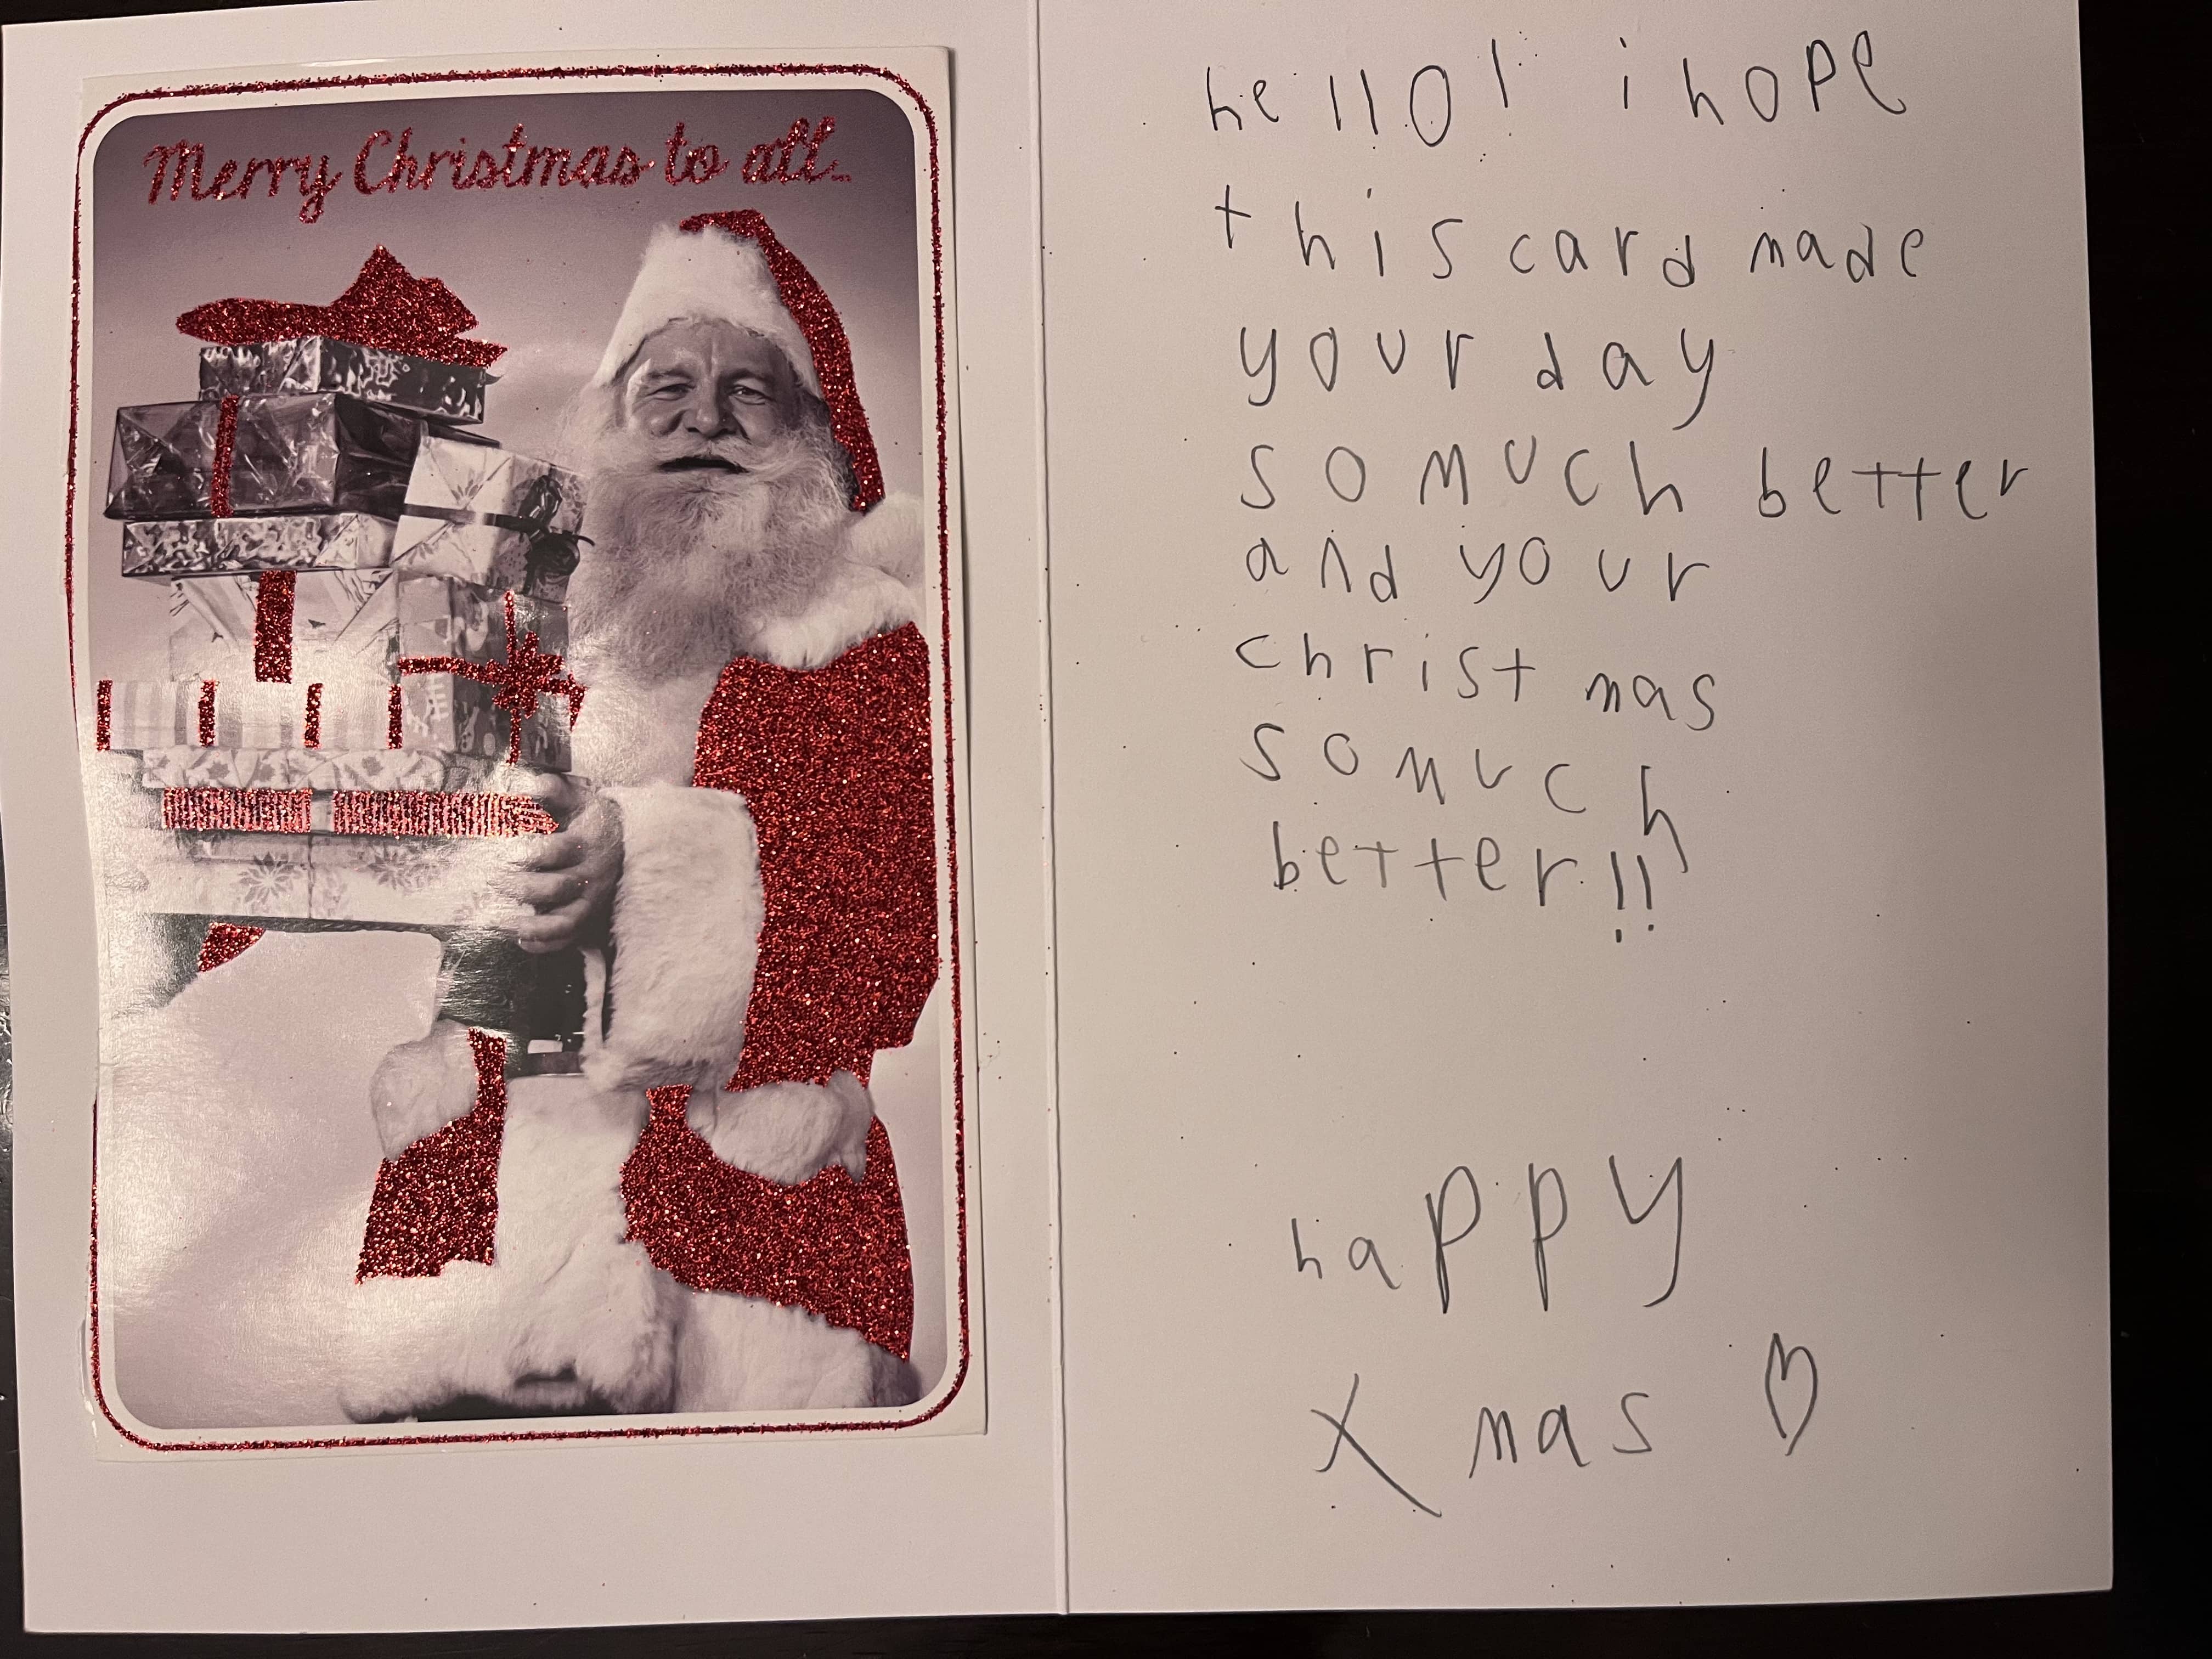 Merry Christmas to all...
hello! i hope
this card made
your day
so much better
and your
christmas
so much
better!!
happy
Xmas ♡